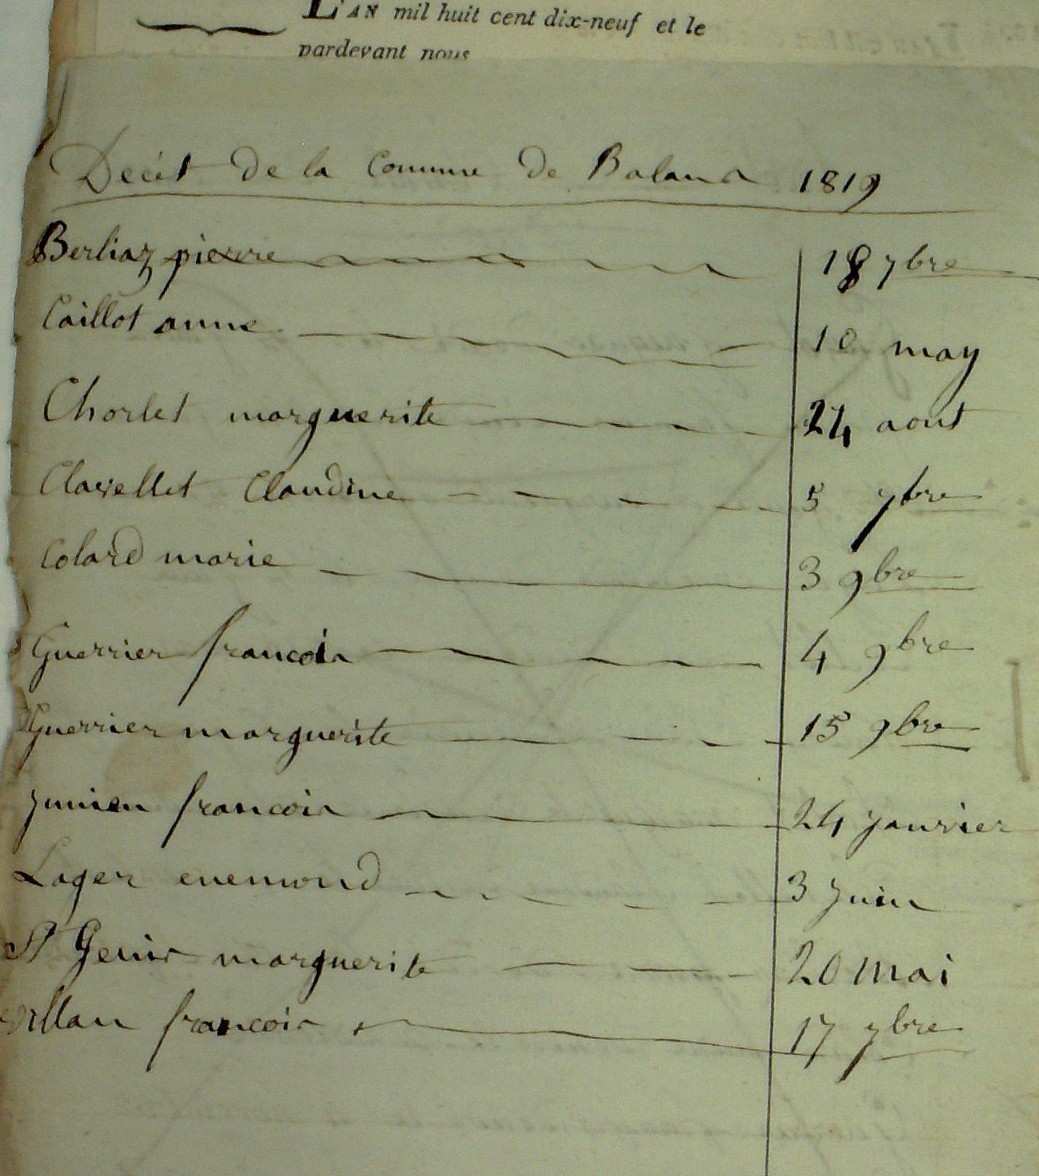 L'AN mil huit cent dix-neuf et le
pardevant nous
Decét de la Commune de Balan 1819
Berliaz pierre 18 7bre
Caillot anne 10 may
Chorlet marguerite 24 aout
Clavellet Claudine 5 7bre
Colard marie 3 9bre
Guerrier francois 4 9bre
Guerrier marguerite 15 9bre
Junien francois 24 janvier
Lager enemond 3 juin
St Genis marguerite 20 mai
francois 17 7bre